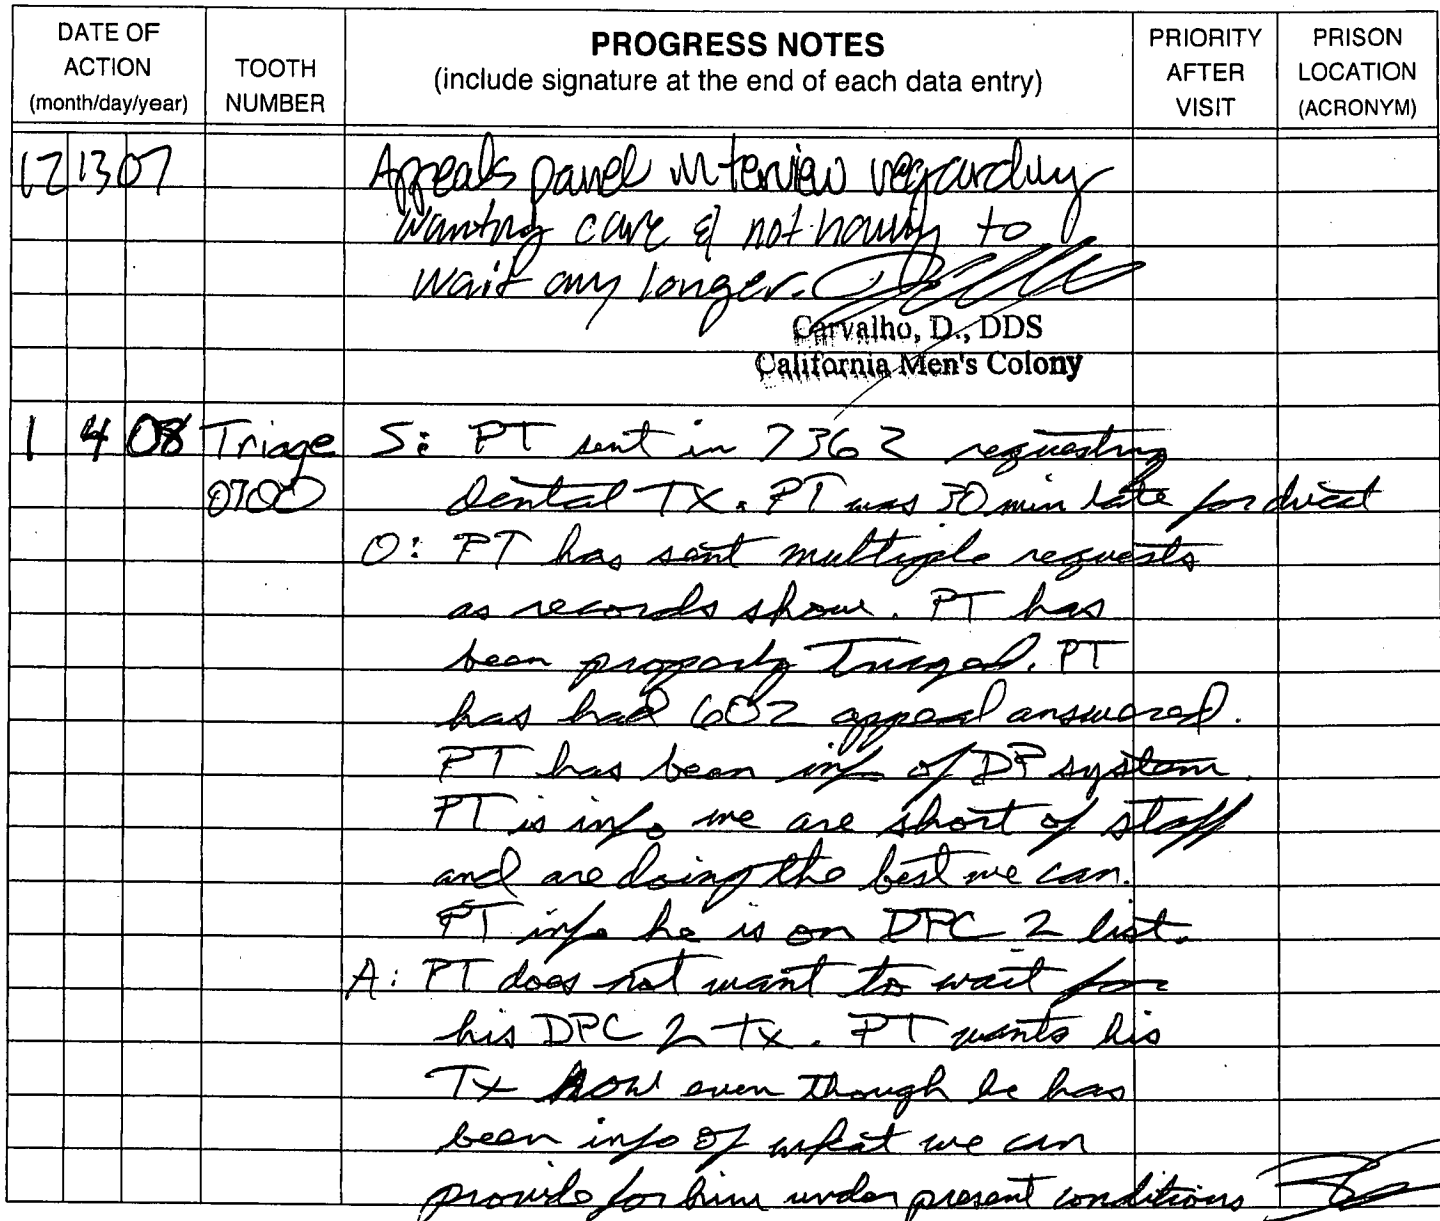 DATE OF ACTION (month/day/year)
TOOTH NUMBER
PROGRESS NOTES
(include signature at the end of each data entry)
PRIORITY AFTER VISIT
PRISON LOCATION (ACRONYM)
12 13 07 Appeals panel interview regarding
wanting care & not having to
wait any longer.
Carvalho, D., DDS
California Men's Colony
1 4 08 Triage S: PT sent in 7362 requesting
0700 Dental TX. PT was 30 min late for ducat
O: PT has sent multiple requests
as records show. PT has
been properly Triaged. PT
has had 602 appeal answered.
PT has been info of DP system.
PT is info we are short of staff
and are doing the best we can.
PT info he is on DPC 2 list.
A: PT does not want to wait for
his DPC 2 Tx. PT wants his
Tx now even though he has
been info of what we can
provide for him under present conditions